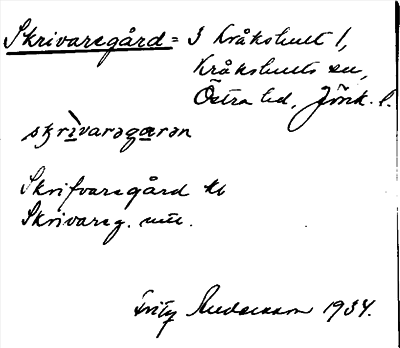 Skrivaregård = I Kråkshult 1,
Kråkshults sn,
Östra hd, Jönk. l.
skrìvaregaren
Skrifvaregård kb
Skrivareg. mtl.
Fritz Andersson 1934.